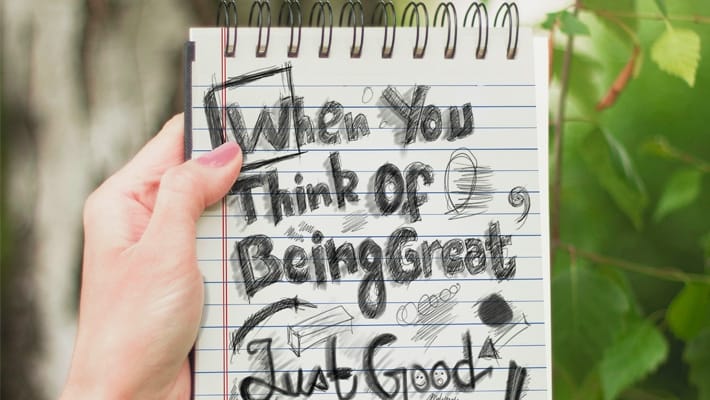 When You
Think Of
Being Great,
Just Good